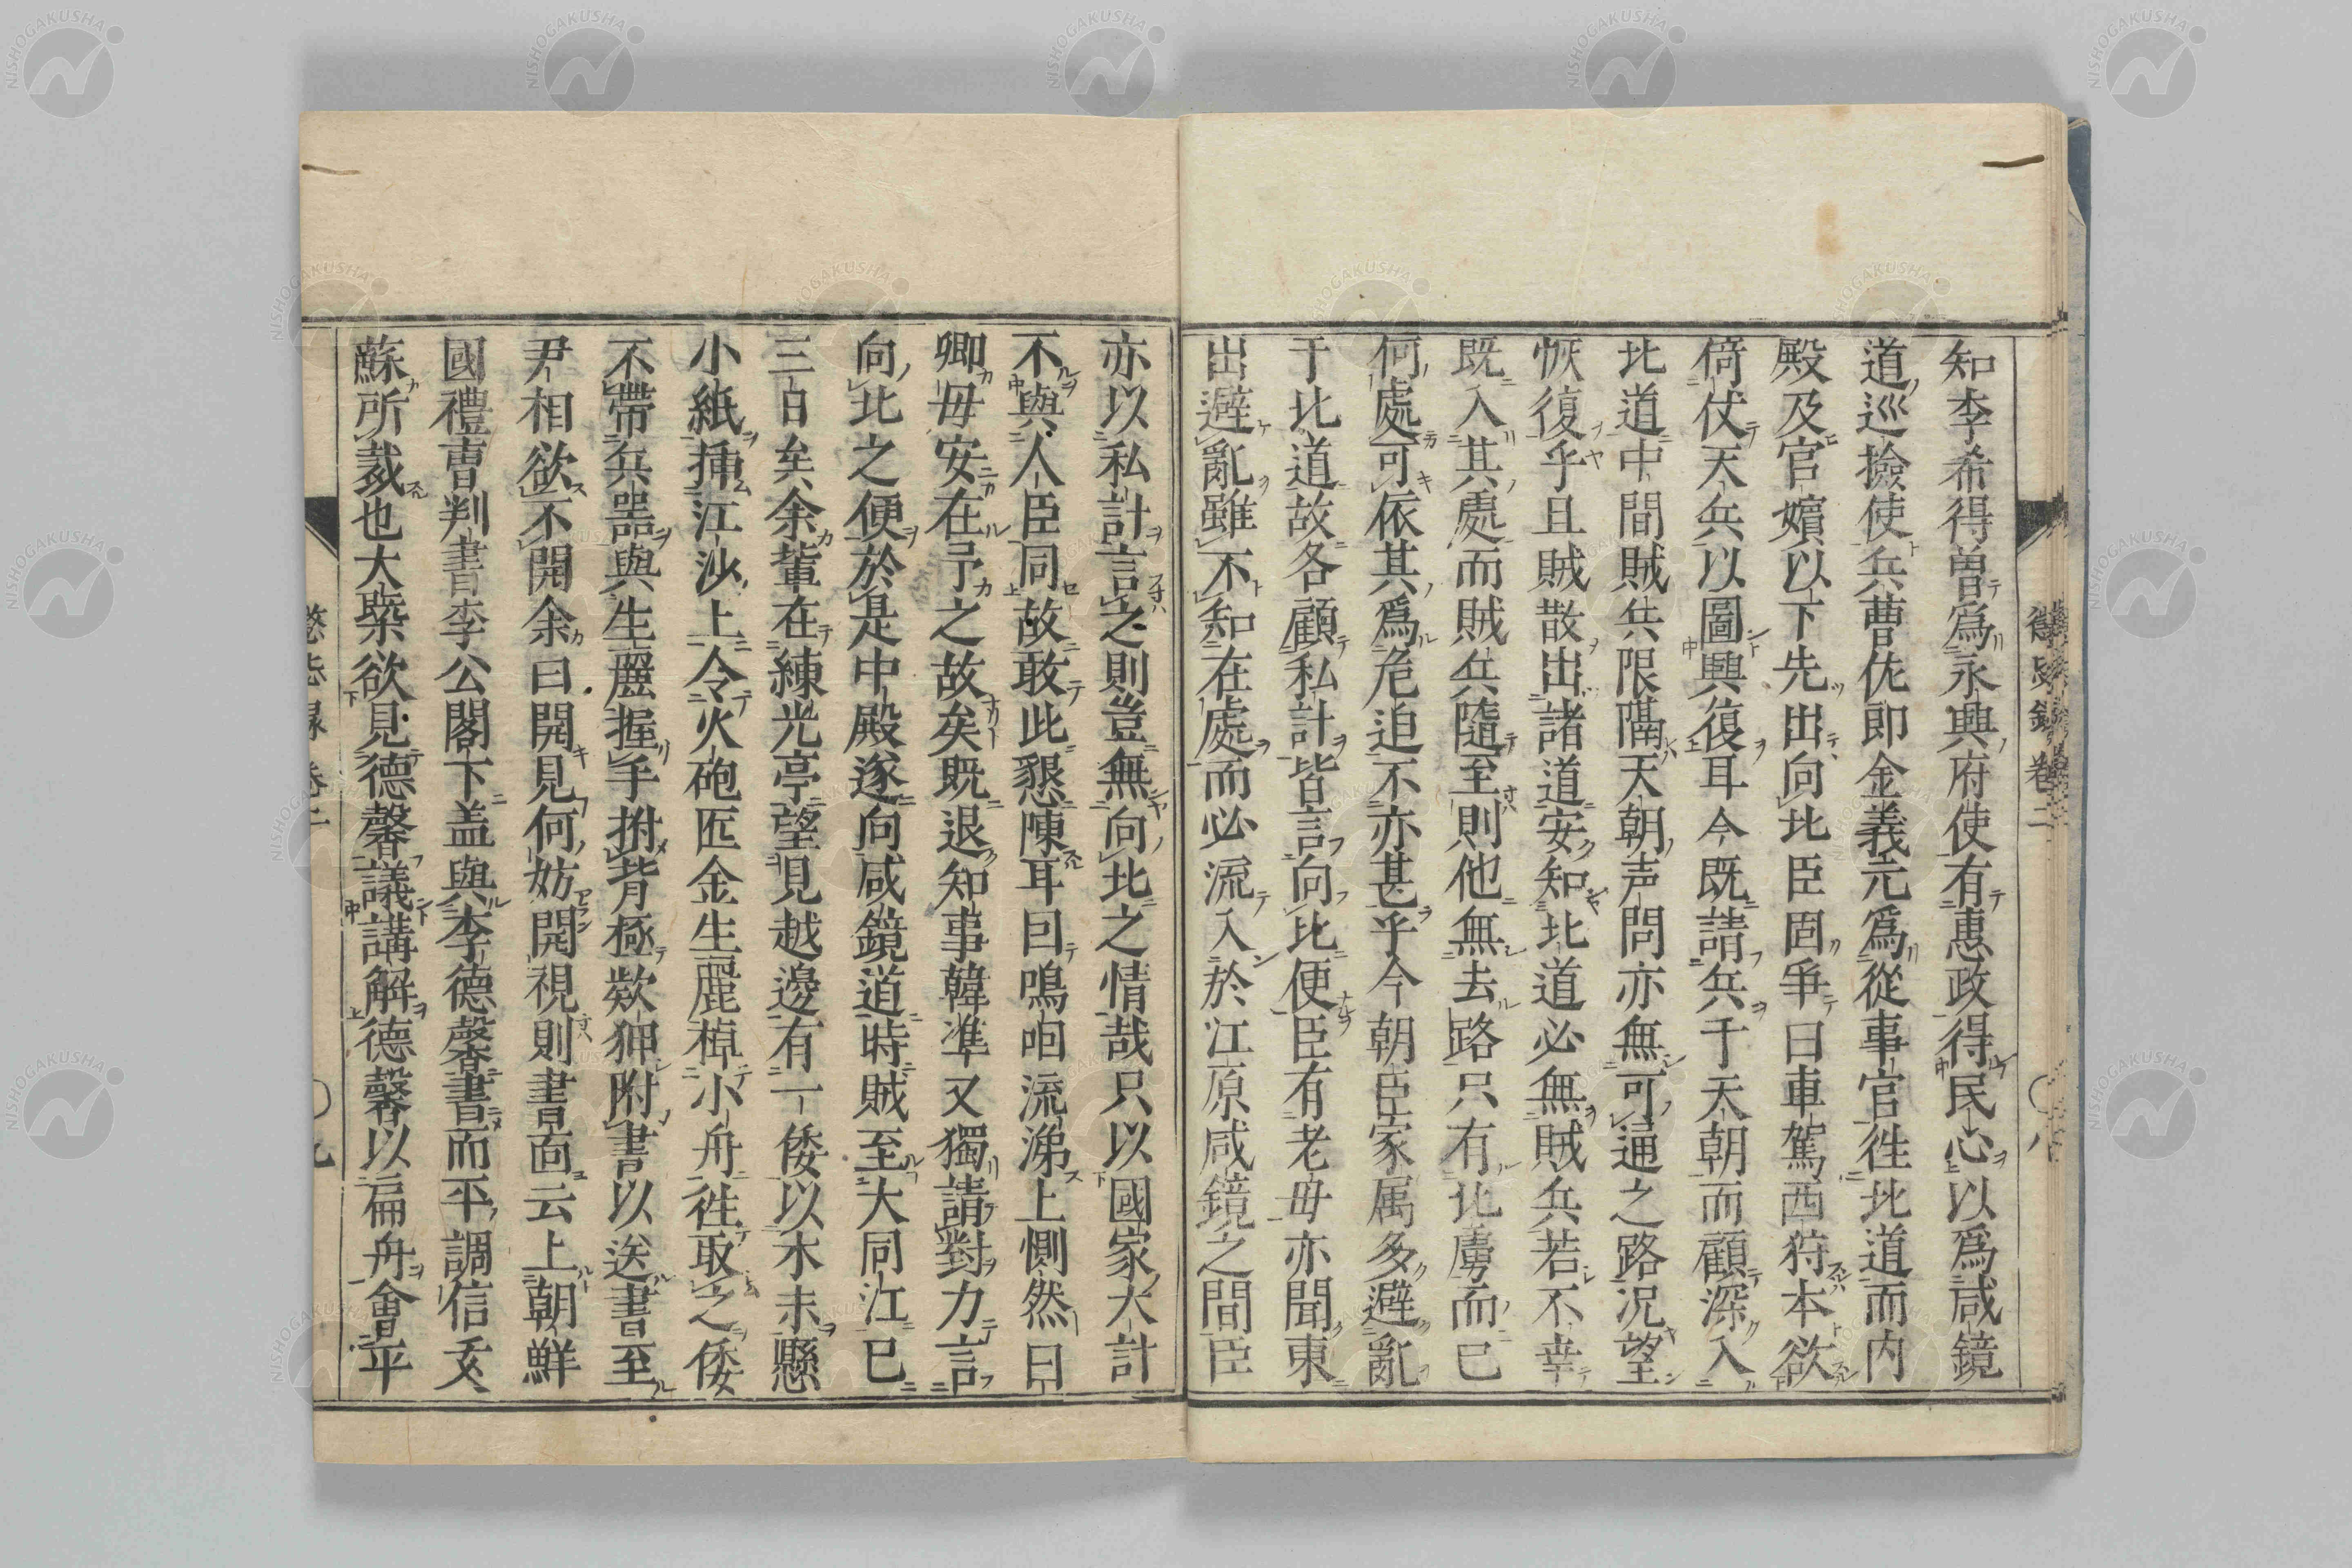 知李希得曽爲永興府使有惠政得民心以爲咸鏡
道巡撿使兵曹佐郎金義元爲從事官徃北道而内
殿及官嬪以下先出向北臣固爭曰車駕西狩本欲
倚仗天兵以圖興復耳今既請兵于天朝而顧深入
北道中間賊兵限隔天朝声問亦無可通之路况望
恢復乎且賊散出諸道安知北道必無賊兵若不幸
既入其處而賊兵隨至則他無去路只有北虜而已
何處可依其爲危迫不亦甚乎今朝臣家属多避亂
于北道故各顧私計皆言向北便臣有老毋亦聞東
出避亂雖不知在處而必流入於江原咸鏡之間臣
亦以私計言之則豈無向北之情哉只以國家大計
不與人臣同故敢此懇陳耳因鳴咽流涕上惻然曰
卿毋安在予之故矣既退知事韓準又獨請對力言
向北之便於是中殿遂向咸鏡道時賊至大同江已
三日矣余輩在練光亭望見越邊有一倭以木末懸
小紙挿江沙上令火砲匠金生麗棹小舟徃取之倭
不帶兵噐與生麗握手拊背極欵狎附書以送書至
尹相欲不開余曰開見何妨開視則書面云上朝鮮
國禮曹判書李公閣下盖與李德馨書而平調信玄
蘇所裁也大槩欲見德馨議講解德馨以扁舟會平
懲毖録 卷二 八